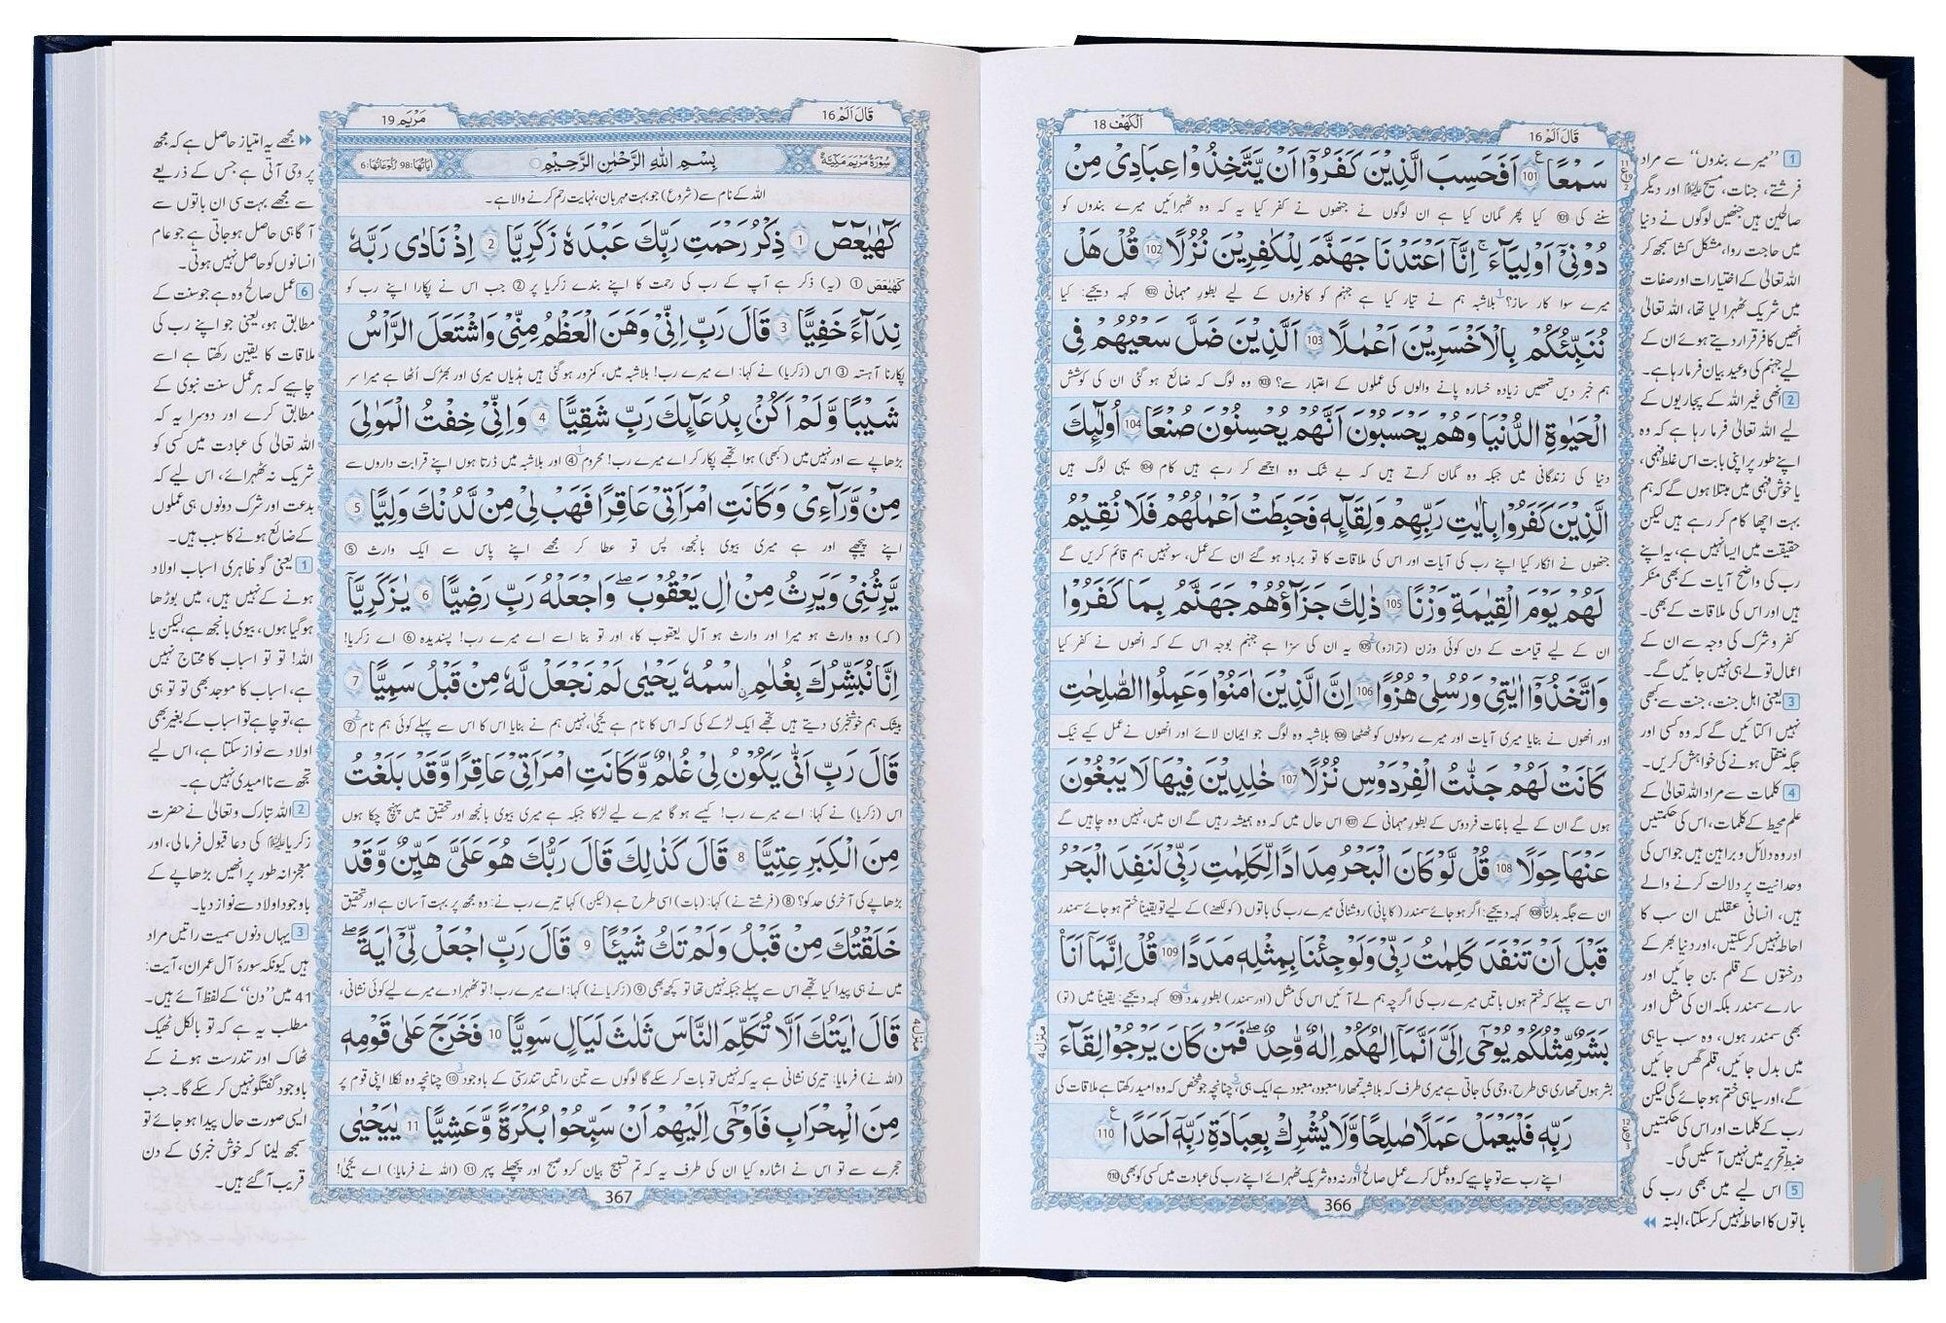 الكهف 18
قال الم 16
سَمْعًا 101 اَفَحَسِبَ الَّذِيْنَ كَفَرُوْۤا اَنْ يَّتَّخِذُوْا عِبَادِىْ مِنْ
سننے کی 101 کیا پھر گمان کیا ہے ان لوگوں نے جنھوں نے کفر کیا یہ کہ وہ ٹھہرائیں میرے بندوں کو
دُوْنِىْۤ اَوْلِيَآءَ ۚ اِنَّاۤ اَعْتَدْنَا جَهَنَّمَ لِلْكٰفِرِيْنَ نُزُلًا 102 قُلْ هَلْ
میرے سوا کار ساز؟ 1 بلاشبہ ہم نے تیار کیا ہے جہنم کو کافروں کے لیے بطورِ مہمانی 102 کہہ دیجیے: کیا
نُنَبِّئُكُمْ بِالْاَخْسَرِيْنَ اَعْمٰلًا 103 اَلَّذِيْنَ ضَلَّ سَعْيُهُمْ فِى
ہم خبر دیں تمھیں زیادہ خسارہ پانے والوں کی عملوں کے اعتبار سے؟ 103 وہ لوگ کہ ضائع ہو گئی ان کی کوشش
الْحَيٰوةِ الدُّنْيَا وَهُمْ يَحْسَبُوْنَ اَنَّهُمْ يُحْسِنُوْنَ صُنْعًا 104 اُولٰٓئِكَ
دنیا کی زندگانی میں جبکہ وہ گمان کرتے ہیں کہ بے شک وہ اچھے کر رہے ہیں کام 104 یہی لوگ ہیں
الَّذِيْنَ كَفَرُوْا بِاٰيٰتِ رَبِّهِمْ وَلِقَآىِٕهٖ فَحَبِطَتْ اَعْمٰلُهُمْ فَلَا نُقِيْمُ
جنھوں نے انکار کیا اپنے رب کی آیات اور اس کی ملاقات کا تو برباد ہو گئے ان کے عمل، سو نہیں ہم قائم کریں گے
لَهُمْ يَوْمَ الْقِيٰمَةِ وَزْنًا 105 ذٰلِكَ جَزَآؤُهُمْ جَهَنَّمُ بِمَا كَفَرُوْا
ان کے لیے قیامت کے دن کوئی وزن (ترازو) 2 105 یہ ان کی سزا ہے جہنم بوجہ اس کے کہ انھوں نے کفر کیا
وَاتَّخَذُوْۤا اٰيٰتِىْ وَرُسُلِىْ هُزُوًا 106 اِنَّ الَّذِيْنَ اٰمَنُوْا وَعَمِلُوا الصّٰلِحٰتِ
اور انھوں نے بنایا میری آیات اور میرے رسولوں کو ٹھٹھا 106 بلاشبہ وہ لوگ جو ایمان لائے اور انھوں نے عمل کیے نیک
كَانَتْ لَهُمْ جَنّٰتُ الْفِرْدَوْسِ نُزُلًا 107 خٰلِدِيْنَ فِيْهَا لَا يَبْغُوْنَ
ہوں گے ان کے لیے باغات فردوس کے بطور مہمانی کے 107 اس حال میں کہ وہ ہمیشہ رہیں گے ان میں، نہیں وہ چاہیں گے
عَنْهَا حِوَلًا 108 قُلْ لَّوْ كَانَ الْبَحْرُ مِدَادًا لِّكَلِمٰتِ رَبِّىْ لَنَفِدَ الْبَحْرُ
ان سے جگہ بدلنا 3 108 کہہ دیجیے: اگر ہو جائے سمندر (کا پانی) روشنائی میرے رب کی باتوں (کو لکھنے) کے لیے تو یقیناً ختم ہو جائے سمندر
قَبْلَ اَنْ تَنْفَدَ كَلِمٰتُ رَبِّىْ وَلَوْ جِئْنَا بِمِثْلِهٖ مَدَدًا 109 قُلْ اِنَّمَاۤ اَنَا
اس سے پہلے کہ ختم ہوں باتیں میرے رب کی اگرچہ ہم لے آئیں اس کی مثل (اور سمندر) بطور مدد 4 109 کہہ دیجیے: یقیناً میں (تو)
بَشَرٌ مِّثْلُكُمْ يُوْحٰۤى اِلَىَّ اَنَّمَاۤ اِلٰهُكُمْ اِلٰهٌ وّٰحِدٌ ۖ فَمَنْ كَانَ يَرْجُوْا لِقَآءَ
بشر ہوں تمھاری ہی طرح، وحی کی جاتی ہے میری طرف کہ بلاشبہ تمھارا معبود، معبود ہے ایک ہی، 5 چنانچہ جو شخص کہ وہ امید رکھتا ہے ملاقات کی
رَبِّهٖ فَلْيَعْمَلْ عَمَلًا صٰلِحًا وَّلَا يُشْرِكْ بِعِبَادَةِ رَبِّهٖۤ اَحَدًا 110
اپنے رب سے تو چاہیے کہ وہ عمل کرے عمل صالح 6 اور نہ وہ شریک ٹھہرائے اپنے رب کی عبادت میں کسی کو بھی 110
منزل 4
366
1 ’’میرے بندوں‘‘ سے مراد
فرشتے، جنات، مسیح علیہ السلام اور دیگر
صالحین ہیں جنھیں لوگوں نے دنیا
میں حاجت روا، مشکل کشا سمجھ کر
اللہ تعالیٰ کے اختیارات اور صفات
میں شریک ٹھہرا لیا تھا، اللہ تعالیٰ
انھیں کافر قرار دیتے ہوئے ان کے
لیے جہنم کی وعید بیان فرما رہا ہے۔
2 انھی غیر اللہ کے پجاریوں کے
لیے اللہ تعالیٰ فرما رہا ہے کہ وہ
اپنے طور پر اپنی بابت اس غلط فہمی،
یا خوش فہمی میں مبتلا ہوں گے کہ ہم
بہت اچھا کام کر رہے ہیں لیکن
حقیقت میں ایسا نہیں ہے، یہ اپنے
رب کی واضح آیات کے بھی منکر
ہیں اور اس کی ملاقات کے بھی۔
کفر و شرک کی وجہ سے ان کے
اعمال تولے ہی نہیں جائیں گے۔
3 یعنی اہل جنت، جنت سے کبھی
نہیں اکتائیں گے کہ وہ کسی اور
جگہ منتقل ہونے کی خواہش کریں۔
4 کلمات سے مراد اللہ تعالیٰ کے
علم محیط کے کلمات، اس کی حکمتیں
اور وہ دلائل و براہین ہیں جو اس کی
وحدانیت پر دلالت کرنے والے
ہیں، انسانی عقلیں ان سب کا
احاطہ نہیں کر سکتیں، اور دنیا بھر کے
درختوں کے قلم بن جائیں اور
سارے سمندر بلکہ ان کی مثل اور
بھی سمندر ہوں، وہ سب سیاہی
میں بدل جائیں، قلم گھس جائیں
گے، اور سیاہی ختم ہو جائے گی لیکن
رب کے کلمات اور اس کی حکمتیں
ضبط تحریر میں نہیں آ سکیں گی۔
5 اس لیے میں بھی رب کی
باتوں کا احاطہ نہیں کر سکتا، البتہ
مريم 19
قال الم 16
سُوْرَةُ مَرْيَمَ مَكِّيَّةٌ
بِسْمِ اللهِ الرَّحْمٰنِ الرَّحِيْمِ
اٰيَاتُهَا: 98 رُكُوْعَاتُهَا: 6
اللہ کے نام سے (شروع) جو بہت مہربان، نہایت رحم کرنے والا ہے۔
كٓهٰيٰعٓصٓ 1 ذِكْرُ رَحْمَتِ رَبِّكَ عَبْدَهٗ زَكَرِيَّا 2 اِذْ نَادٰى رَبَّهٗ
كٓهٰيٰعٓصٓ 1 (یہ) ذکر ہے آپ کے رب کی رحمت کا اپنے بندے زکریا پر 2 جب اس نے پکارا اپنے رب کو
نِدَآءً خَفِيًّا 3 قَالَ رَبِّ اِنِّىْ وَهَنَ الْعَظْمُ مِنِّىْ وَاشْتَعَلَ الرَّاْسُ
پکارنا آہستہ 3 اس (زکریا) نے کہا: اے میرے رب! بلاشبہ میں، کمزور ہو گئی ہیں ہڈیاں میری اور بھڑک اُٹھا ہے میرا سر
شَيْبًا وَّلَمْ اَكُنْۢ بِدُعَآىِٕكَ رَبِّ شَقِيًّا 4 وَاِنِّىْ خِفْتُ الْمَوٰلِىَ
بڑھاپے سے اور نہیں میں (کبھی) ہوا تجھے پکار کر اے میرے رب! محروم 1 4 اور بلاشبہ میں ڈرتا ہوں اپنے قرابت داروں سے
مِنْ وَّرَآءِىْ وَكَانَتِ امْرَاَتِىْ عَاقِرًا فَهَبْ لِىْ مِنْ لَّدُنْكَ وَلِيًّا 5
اپنے پیچھے اور ہے میری بیوی بانجھ، پس تو عطا کر مجھے اپنے پاس سے ایک وارث 5
يَّرِثُنِىْ وَيَرِثُ مِنْ اٰلِ يَعْقُوْبَ ۖ وَاجْعَلْهُ رَبِّ رَضِيًّا 6 يٰزَكَرِيَّاۤ
(کہ) وہ وارث ہو میرا اور وارث ہو آلِ یعقوب کا، اور تو بنا اسے اے میرے رب! پسندیدہ 6 اے زکریا!
اِنَّا نُبَشِّرُكَ بِغُلٰمِ اِسْمُهٗ يَحْيٰى لَمْ نَجْعَلْ لَّهٗ مِنْ قَبْلُ سَمِيًّا 7
بیشک ہم خوشخبری دیتے ہیں تجھے ایک لڑکے کی کہ اس کا نام ہے یحییٰ، نہیں ہم نے بنایا اس کا اس سے پہلے کوئی ہم نام 2 7
قَالَ رَبِّ اَنّٰى يَكُوْنُ لِىْ غُلٰمٌ وَّكَانَتِ امْرَاَتِىْ عَاقِرًا وَّقَدْ بَلَغْتُ
اس (زکریا) نے کہا: اے میرے رب! کیسے ہو گا میرے لیے لڑکا جبکہ ہے میری بیوی بانجھ اور تحقیق میں پہنچ چکا ہوں
مِنَ الْكِبَرِ عِتِيًّا 8 قَالَ كَذٰلِكَ قَالَ رَبُّكَ هُوَ عَلَىَّ هَيِّنٌ وَّقَدْ
بڑھاپے کی آخری حد کو؟ 8 (فرشتے نے) کہا: (بات) اسی طرح ہے (لیکن) کہا تیرے رب نے: وہ مجھ پر بہت آسان ہے اور تحقیق
خَلَقْتُكَ مِنْ قَبْلُ وَلَمْ تَكُ شَيْـًٔا 9 قَالَ رَبِّ اجْعَلْ لِّىْۤ اٰيَةً ۖ
میں نے ہی پیدا کیا تجھے اس سے پہلے جبکہ نہیں تھا تو کچھ بھی 9 (زکریا نے) کہا: اے میرے رب! تو ٹھہرا دے میرے لیے کوئی نشانی،
قَالَ اٰيَتُكَ اَلَّا تُكَلِّمَ النَّاسَ ثَلٰثَ لَيَالٍ سَوِيًّا 10 فَخَرَجَ عَلٰى قَوْمِهٖ
(اللہ نے) فرمایا: تیری نشانی ہے یہ کہ نہیں تو بات کر سکے گا لوگوں سے تین راتیں تندرستی کے باوجود 3 10 چنانچہ وہ نکلا اپنی قوم پر
مِنَ الْمِحْرَابِ فَاَوْحٰۤى اِلَيْهِمْ اَنْ سَبِّحُوْا بُكْرَةً وَّعَشِيًّا 11 يٰيَحْيٰى
حجرے سے تو اس نے اشارہ کیا ان کی طرف یہ کہ تم تسبیح بیان کرو صبح اور پچھلے پہر 11 (اللہ نے فرمایا:) اے یحییٰ!
منزل 4
367
مجھے یہ امتیاز حاصل ہے کہ مجھ
پر وحی آتی ہے جس کے ذریعے
سے مجھے بہت سی ان باتوں سے
آگاہی حاصل ہو جاتی ہے جو عام
انسانوں کو حاصل نہیں ہوتی۔
6 عمل صالح وہ ہے جو سنت کے
مطابق ہو، یعنی جو اپنے رب کی
ملاقات کا یقین رکھتا ہے اسے
چاہیے کہ ہر عمل سنت نبوی کے
مطابق کرے اور دوسرا یہ کہ
اللہ تعالیٰ کی عبادت میں کسی کو
شریک نہ ٹھہرائے، اس لیے کہ
بدعت اور شرک دونوں ہی عملوں
کے ضائع ہونے کا سبب ہیں۔
1 یعنی گو ظاہری اسباب اولاد
ہونے کے نہیں ہیں، میں بوڑھا
ہو گیا ہوں، بیوی بانجھ ہے، لیکن یا
اللہ! تو تو اسباب کا محتاج نہیں
ہے، اسباب کا موجد بھی تو تو ہی
ہے، تو چاہے تو اسباب کے بغیر بھی
اولاد سے نواز سکتا ہے، اس لیے
تجھ سے نا امیدی نہیں ہے۔
2 اللہ تبارک و تعالیٰ نے حضرت
زکریا علیہ السلام کی دعا قبول فرما لی، اور
معجزانہ طور پر انھیں بڑھاپے کے
باوجود اولاد سے نواز دیا۔
3 یہاں دنوں سمیت راتیں مراد
ہیں کیونکہ سورۂ آل عمران، آیت:
41 میں ’’دن‘‘ کے لفظ آئے ہیں۔
مطلب یہ ہے کہ تو بالکل ٹھیک
ٹھاک اور تندرست ہونے کے
باوجود گفتگو نہیں کر سکے گا۔ جب
ایسی صورت حال پیدا ہو جائے تو
سمجھ لینا کہ خوش خبری کے دن
قریب آ گئے ہیں۔